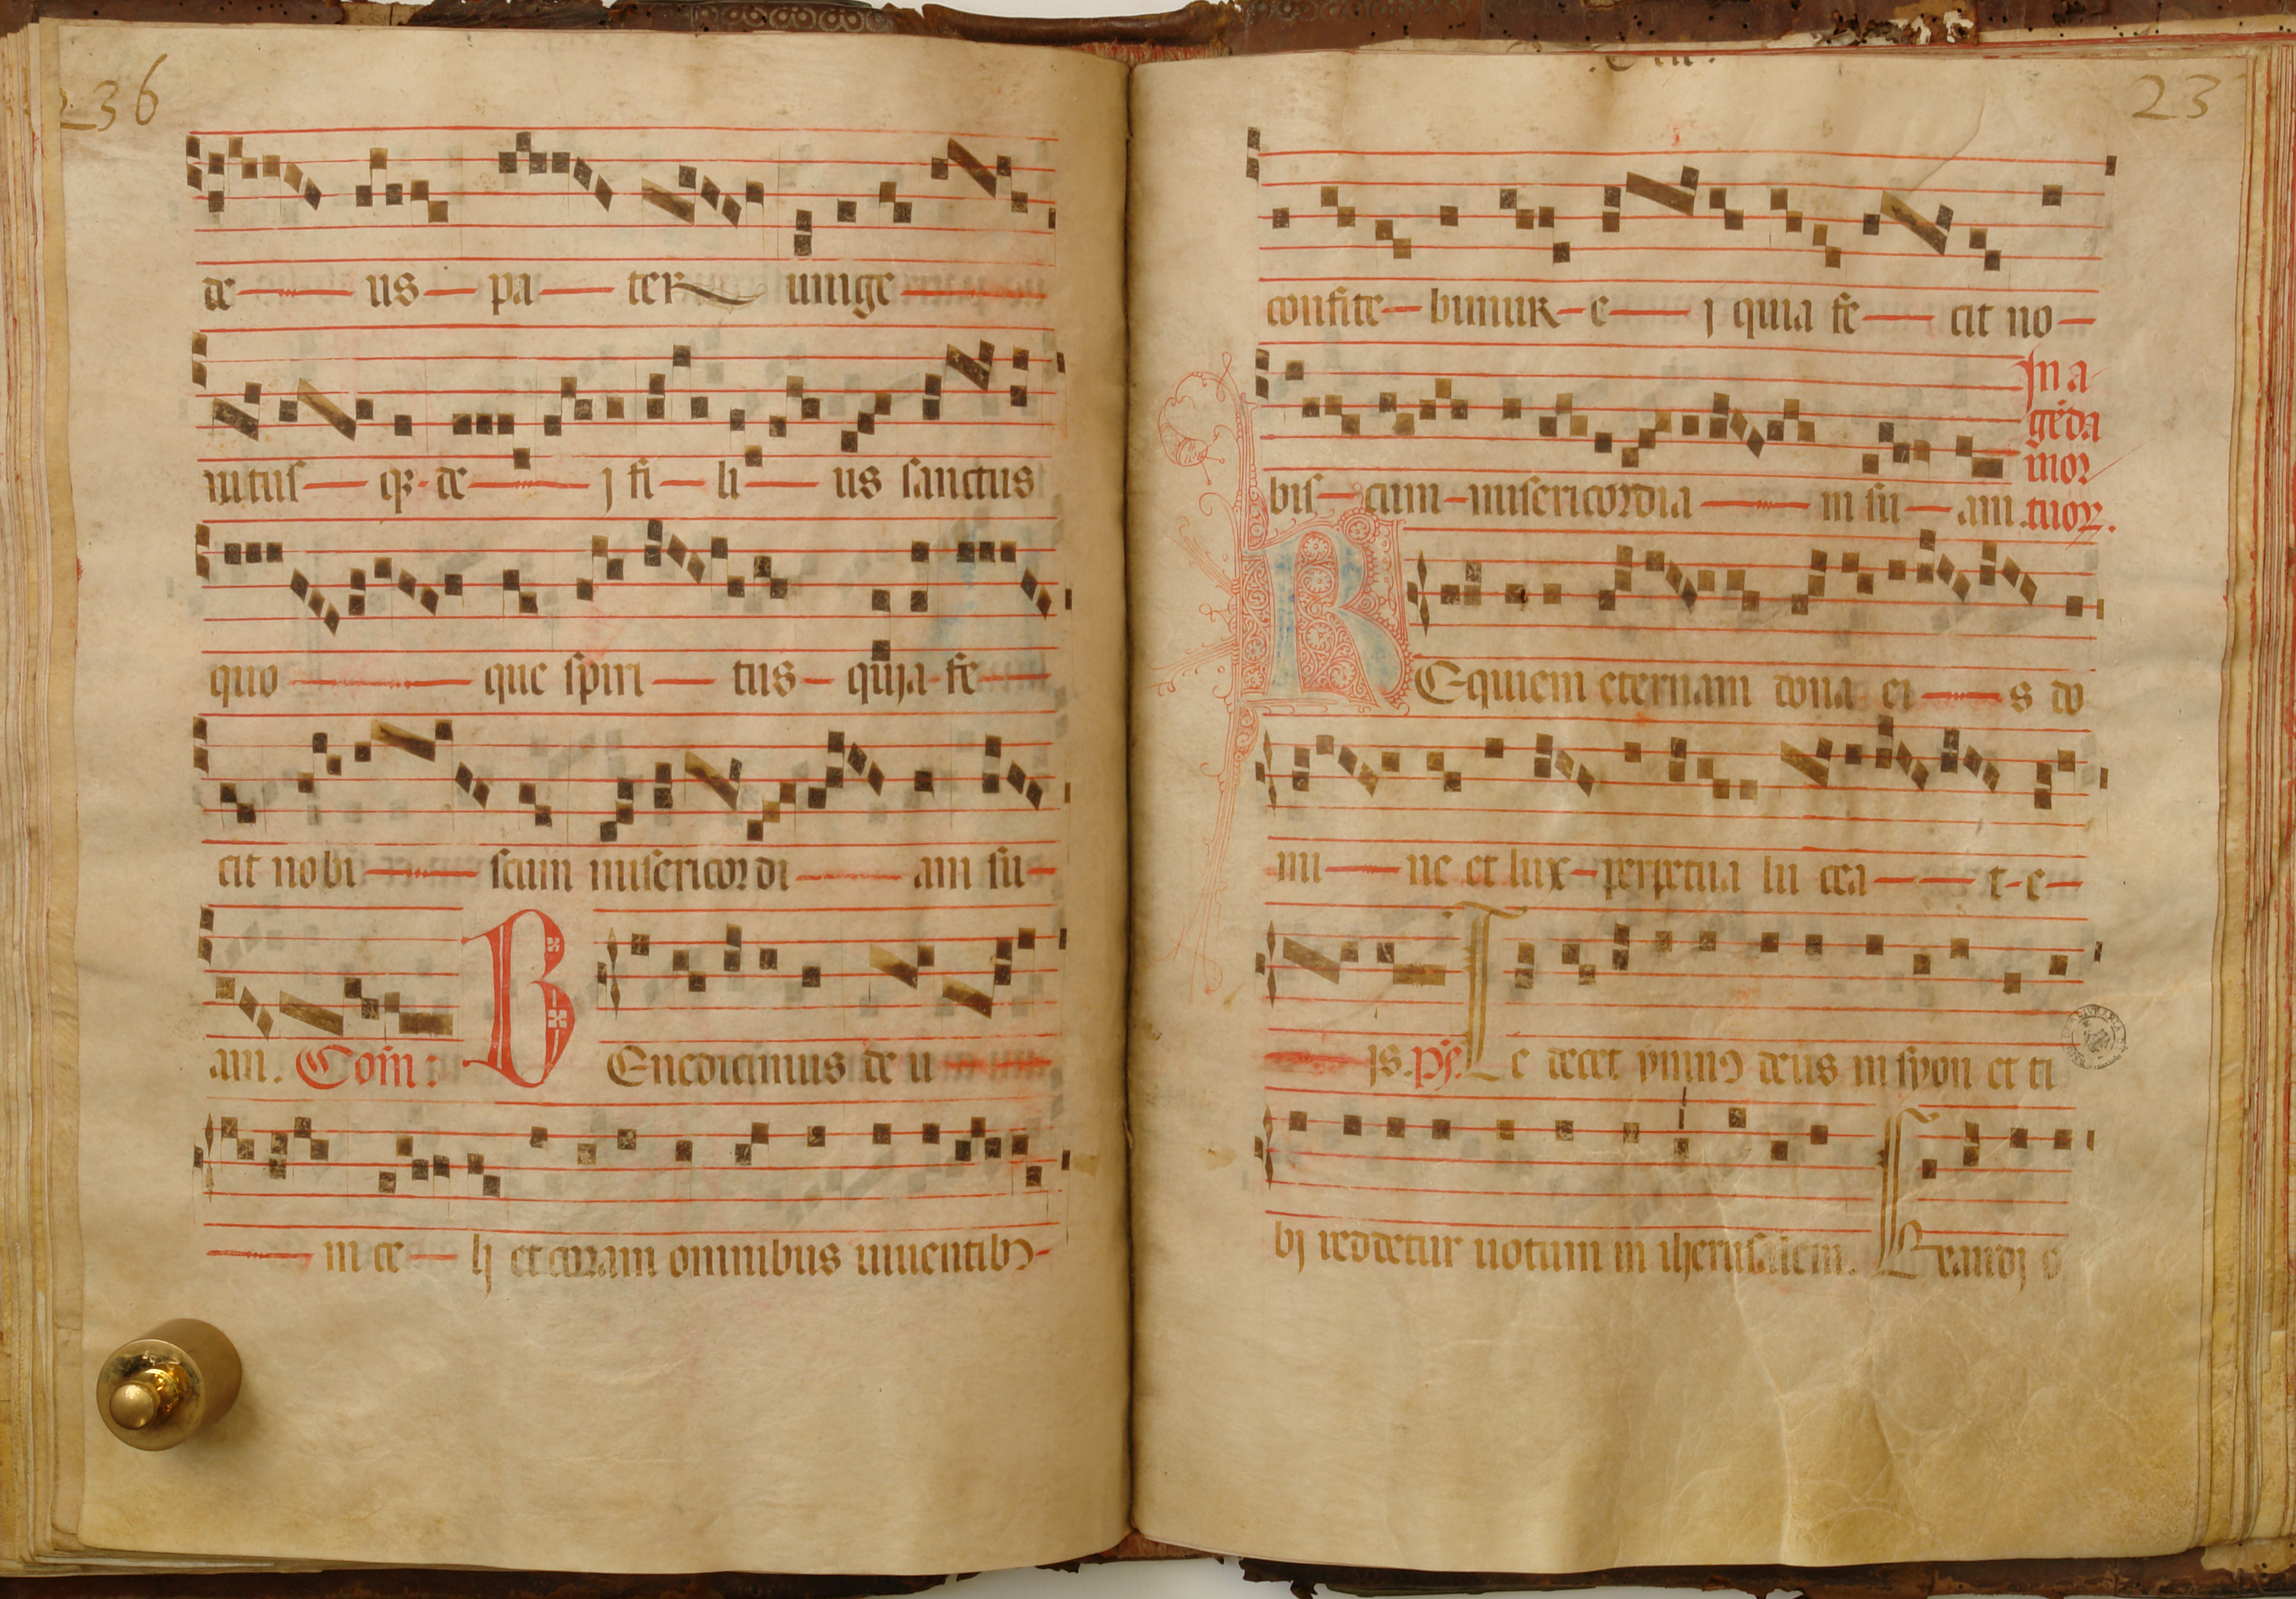 236
de us pa ter unige
nitus qȝ de j fi li us sanctus
quo que spiri tus quja fe
cit nobi scum misericordi am su
am. Com̄: B Enedicimus de u
m ce lj et coram omnibus uiuentibꝰ
23
confite bimur e j quia fe cit no
In a
gēda
bis cum misericordia m su am. mor
tuoꝝ.
R Equiem eternam dona ei s do
mi ne et lux perpetua lu cea t e
js. ps̄. T e decet ymnꝰ deus in syon et ti
bj reddetur uotum in iherusalem. Exaudj o